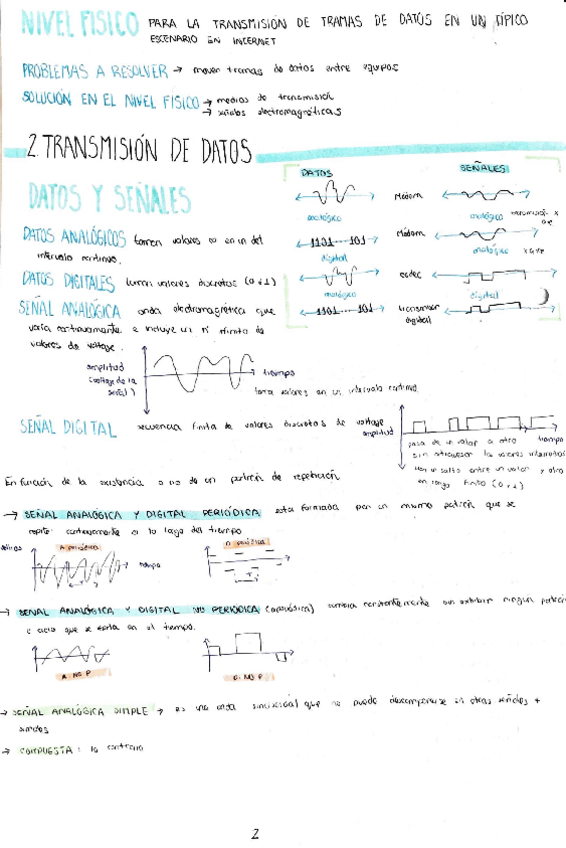 NIVEL FISICO PARA LA TRANSMISIÓN DE TRAMAS DE DATOS EN UN TÍPICO
ESCENARIO EN INTERNET
PROBLEMAS A RESOLVER → mover tramas de datos entre equipos
SOLUCIÓN EN EL NIVEL FISICO → medios de transmisión
→ señales electromagnéticas
2. TRANSMISIÓN DE DATOS
DATOS SEÑALES
DATOS Y SEÑALES
analógico Módem analógico
1101 ---- 101 Módem
digital analógico
codec
analógico digital
1101 ---- 101 transmisor
digital
DATOS ANALÓGICOS toman valores en un del
intervalo continuo.
DATOS DIGITALES toman valores discretos (0 o 1)
SEÑAL ANALÓGICA onda electromagnética que
varía continuamente e incluye un nº infinito de
valores de voltaje.
amplitud
(voltaje de la
señal)
tiempo
toma valores en un intervalo continuo
SEÑAL DIGITAL secuencia finita de valores discretos de voltaje
amplitud
tiempo
pasa de un valor a otro
sin atravesar los valores intermedios
hay un salto entre un valor y otro
en rango finito (0 o 1)
En función de la existencia o no de un patrón de repetición
→ SEÑAL ANALÓGICA Y DIGITAL PERIÓDICA esta formada por un mismo patrón que se
repite continuamente a lo largo del tiempo
A periódica D. periódica
tiempo
→ SEÑAL ANALÓGICA Y DIGITAL NO PERIÓDICA (aperiódica) cambia constantemente sin exhibir ningún patrón
o ciclo que se repita en el tiempo.
A. NO P D. NO P
→ SEÑAL ANALÓGICA SIMPLE → es una onda sinusoidal que no puede descomponerse en otras señales +
simples
→ COMPUESTA: lo contrario
2